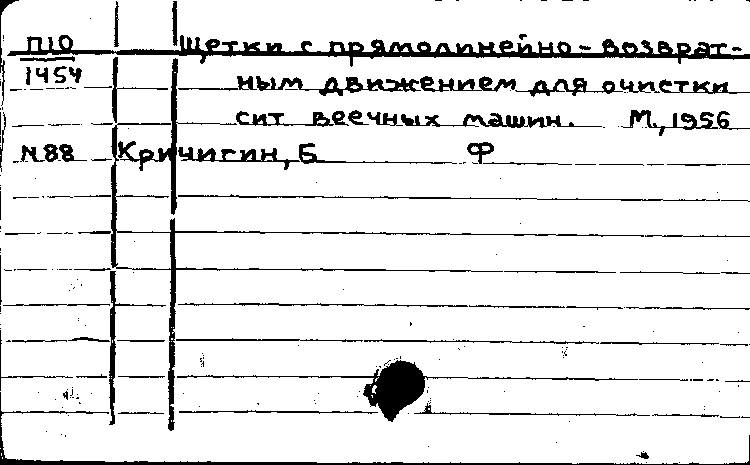 П10 Щетки с прямолинейно-возврат-
1454 ным движением для очистки
сит веечных машин. М., 1956
N88 Кричигин, Б Ф